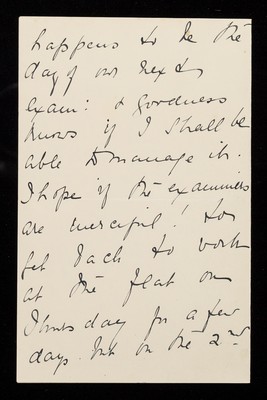 happens to be the
day of our next
exam: & goodness
knows if I shall be
able to manage it.
I hope if the examiners
are merciful! to
get back to work
at the flat on
Thursday for a few
days. but on the 2nd